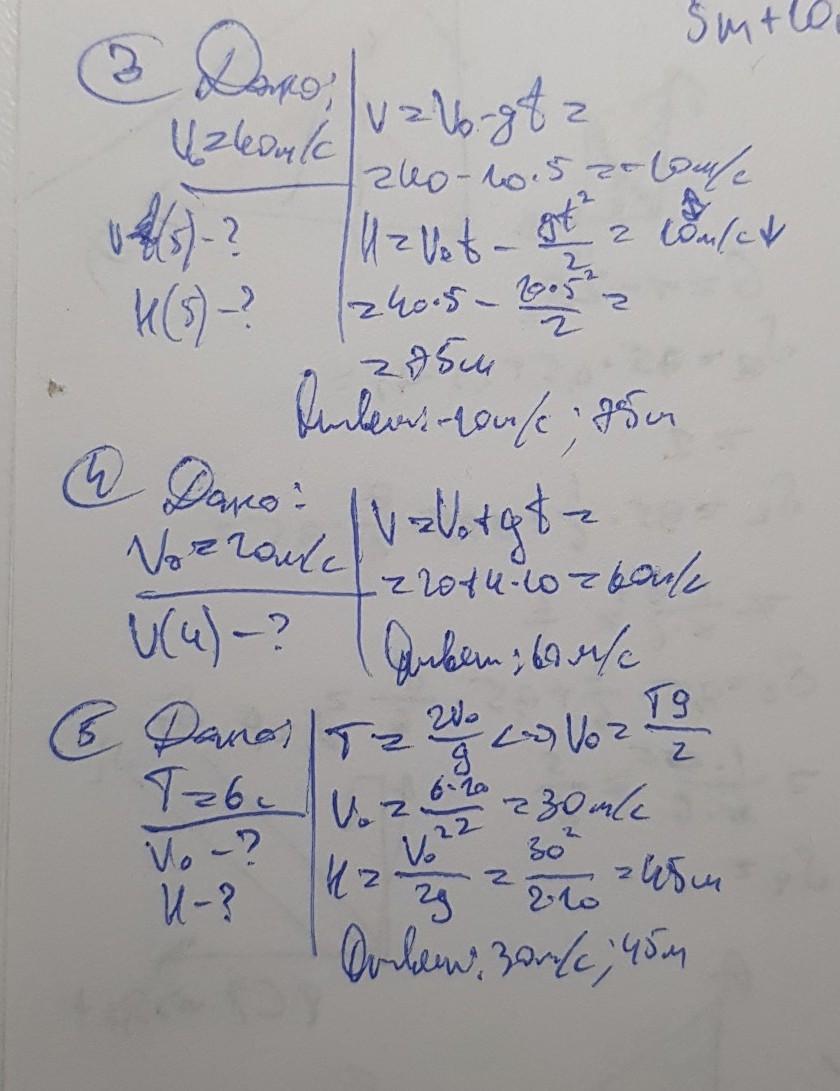 5m+10
③ Дано:
V₀=40м/с
V(5)-?
H(5)-?
V=V₀-gt=
=40-10·5=-10м/с
H=V₀t-gt²/2= 10м/с↓
=40·5-10·5²/2=
=75м
Ответ:-10м/с; 75м
④ Дано:
V₀=20м/с
V(4)-?
V=V₀+gt=
=20+4·10=60м/с
Ответ: 60м/с
⑤ Дано:
T=6с
V₀-?
H-?
T=2V₀/g<=>V₀=Tg/2
V₀=6·10/2=30м/с
H=V₀²/2g=30²/2·10=45м
Ответ: 30м/с; 45м